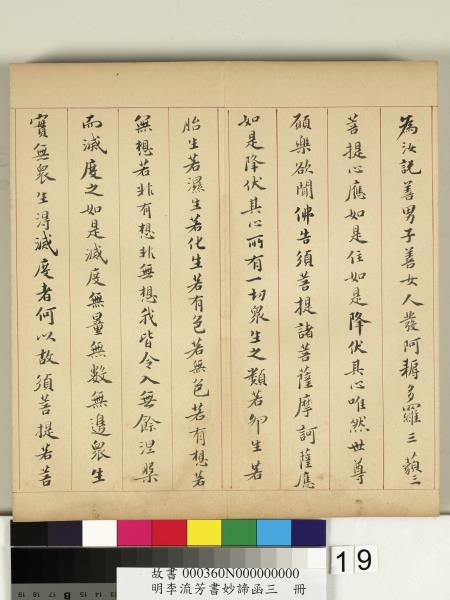 為汝說善男子善女人發阿耨多羅三藐三
菩提心應如是住如是降伏其心唯然世尊
願樂欲聞佛告須菩提諸菩薩摩訶薩應
如是降伏其心所有一切眾生之類若卵生若
胎生若濕生若化生若有色若無色若有想若
無想若非有想非無想我皆令入無餘涅槃
而滅度之如是滅度無量無數無邊眾生
實無眾生得滅度者何以故須菩提若菩
19
故書 000360N000000000
明李流芳書妙諦函三 冊